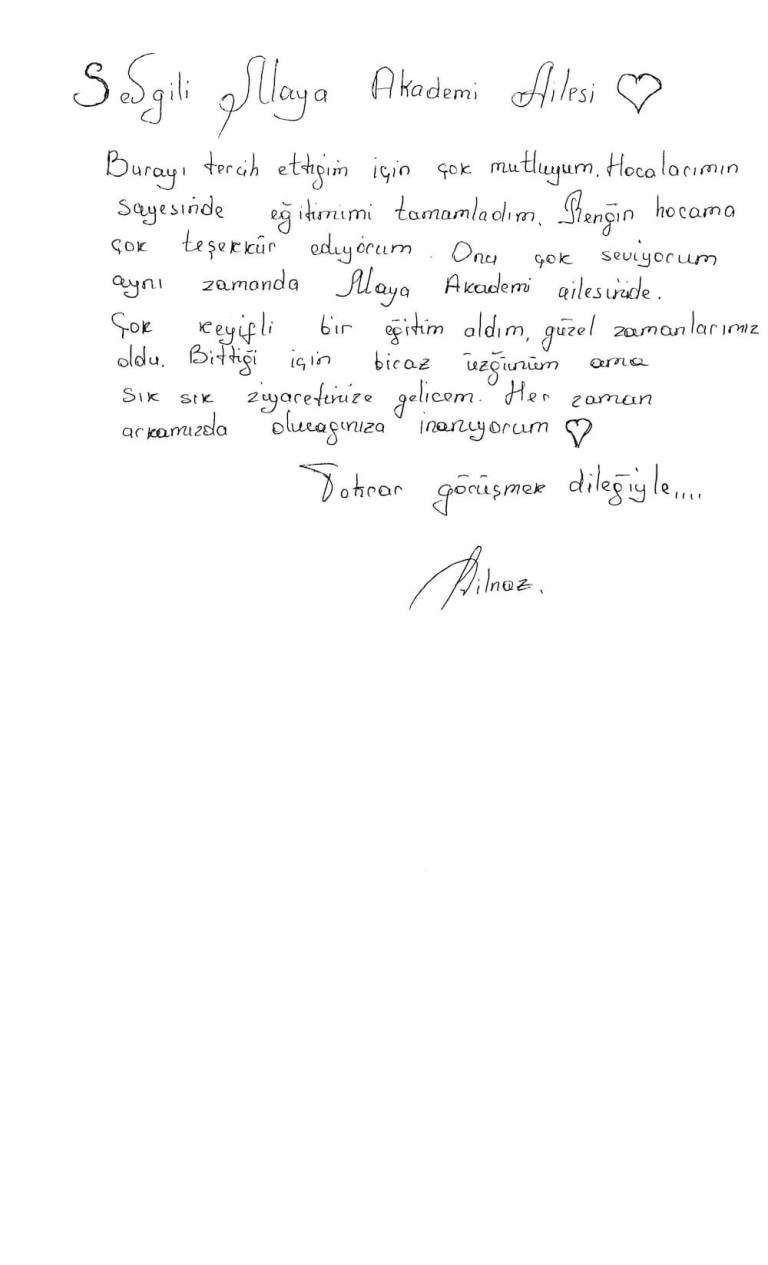 Sevgili Maya Akademi Ailesi ♡
Burayı tercih ettiğim için çok mutluyum. Hocalarımın
sayesinde eğitimimi tamamladım. Rengin hocama
çok teşekkür ediyorum. Onu çok seviyorum
aynı zamanda Maya Akademi ailesinide.
Çok keyifli bir eğitim aldım, güzel zamanlarımız
oldu. Bittiği için biraz üzgünüm ama
sık sık ziyaretinize gelicem. Her zaman
arkamızda olucağınıza inanıyorum ♡
Tekrar görüşmek dileğiyle....